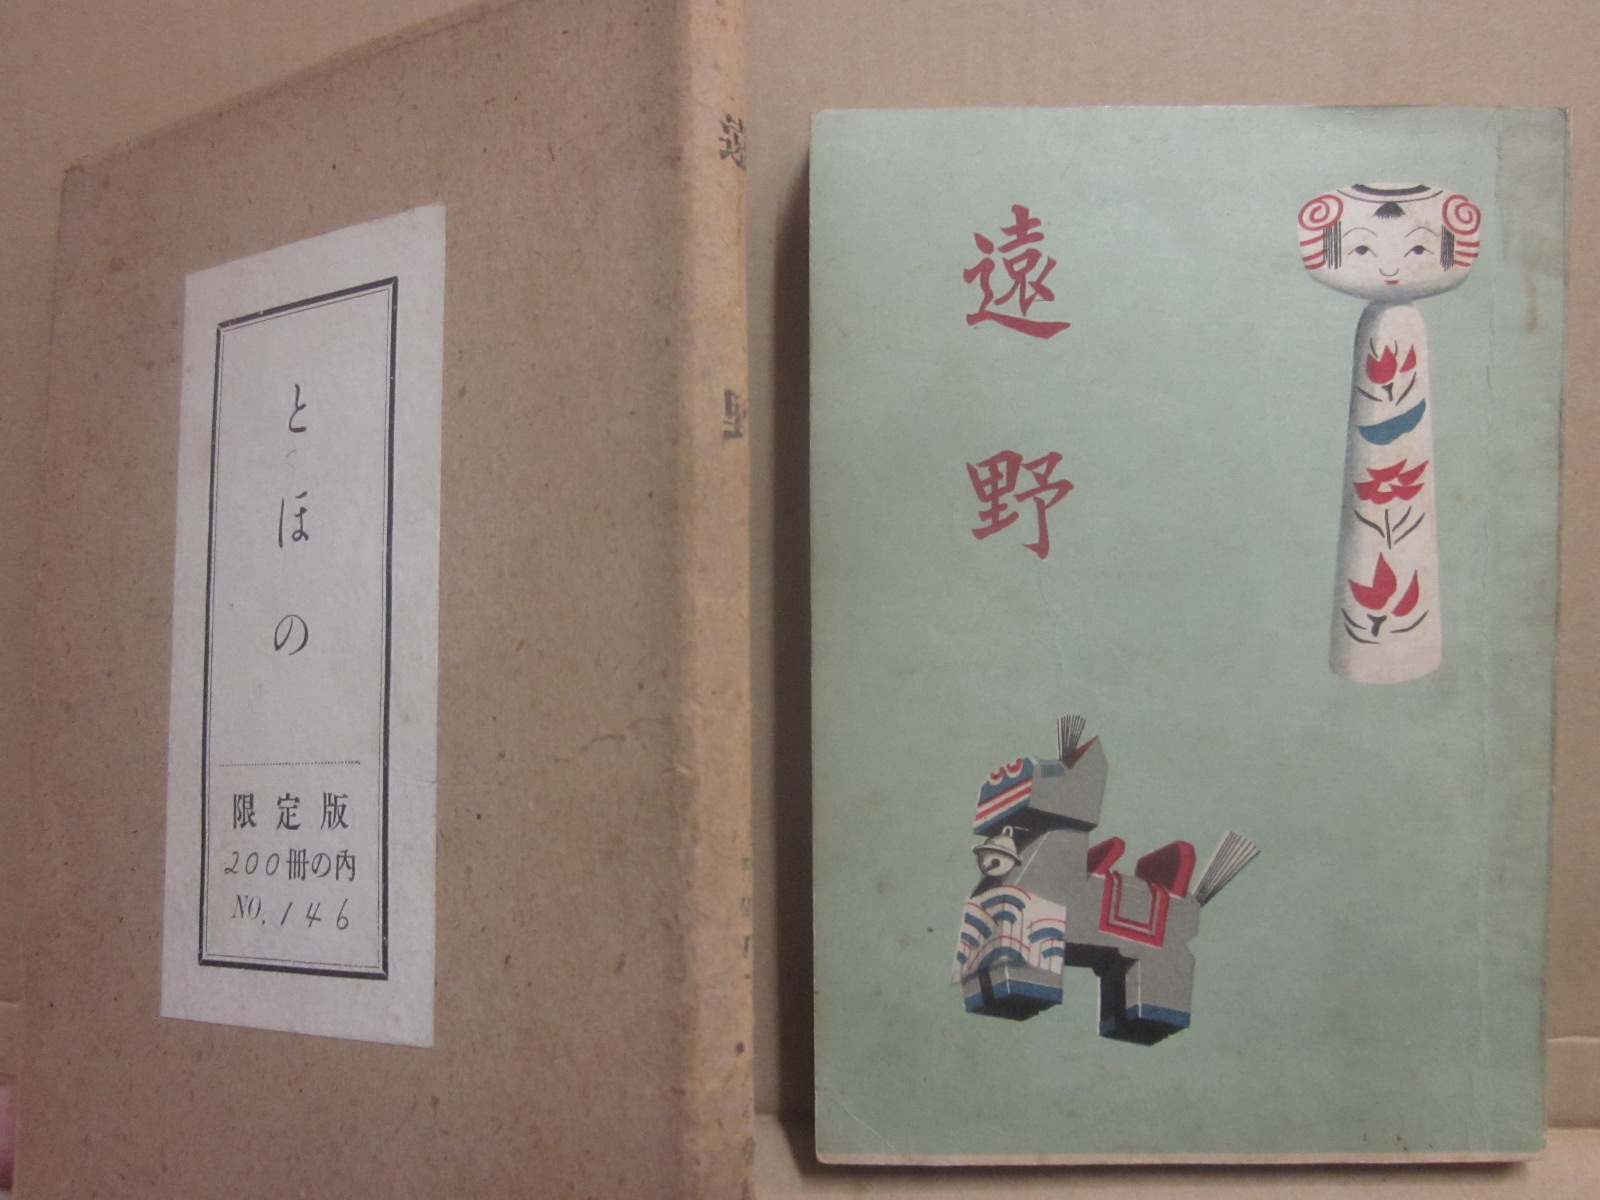 とほの
限定版
200冊の内
NO. 146
遠
遠野